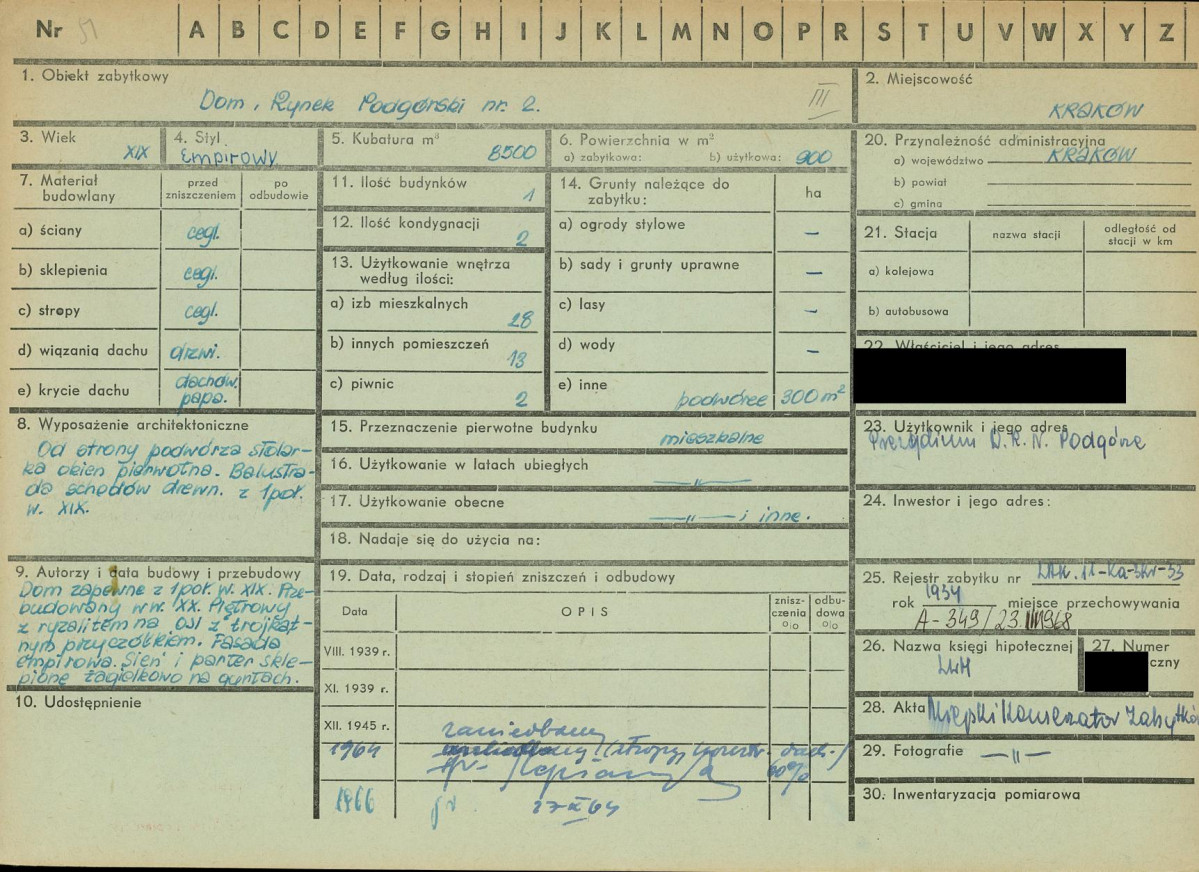 Nr 51 A B C D E F G H I J K L M N O P R S T U V W X Y Z
1. Obiekt zabytkowy
Dom, Rynek Podgórski nr. 2.
III
2. Miejscowość
KRAKÓW
3. Wiek
XIX
4. Styl
Empirowy
5. Kubatura m³
8500
6. Powierzchnia w m²
a) zabytkowa: b) użytkowa: 900
20. Przynależność administracyjna
a) województwo KRAKÓW
b) powiat
c) gmina
7. Materiał budowlany
przed zniszczeniem
po odbudowie
a) ściany cegl.
b) sklepienia cegl.
c) stropy cegl.
d) wiązania dachu drzwi.
e) krycie dachu dachów. papa.
11. Ilość budynków
1
12. Ilość kondygnacji
2
13. Użytkowanie wnętrza
według ilości:
a) izb mieszkalnych
28
b) innych pomieszczeń
13
c) piwnic
2
14. Grunty należące do
zabytku:
ha
a) ogrody stylowe –
b) sady i grunty uprawne –
c) lasy –
d) wody –
e) inne podwórze 300 m²
21. Stacja
nazwa stacji
odległość od
stacji w km
a) kolejowa
b) autobusowa
22. Właściciel i jego adres
8. Wyposażenie architektoniczne
Od strony podwórza stolar-
ka okien pierwotna. Balustra-
da schodów drewn. z 1 poł.
w. XIX.
15. Przeznaczenie pierwotne budynku
mieszkalne
16. Użytkowanie w latach ubiegłych
—„—
17. Użytkowanie obecne
—„— i inne.
18. Nadaje się do użycia na:
23. Użytkownik i jego adres
Prezydium D.R.N. Podgórze
24. Inwestor i jego adres:
9. Autorzy i data budowy i przebudowy
Dom zapewne z 1 poł. w. XIX. Prze-
budowany w w. XX. Piętrowy
z ryzalitem na osi z trójkąt-
nym przyczółkiem. Fasada
empirowa. Sień i parter skle-
pione żagielkowo na gurtach.
10. Udostępnienie
19. Data, rodzaj i stopień zniszczeń i odbudowy
Data
OPIS
znisz-
czenia
%
odbu-
dowa
%
VIII. 1939 r.
XI. 1939 r.
XII. 1945 r.
zaniedbany
1964
60%
1966
27 X 64
25. Rejestr zabytku nr
rok 1934 miejsce przechowywania
A-349/23.III 1968
26. Nazwa księgi hipotecznej
LWH
27. Numer
czny
28. Akta Miejski Konserwator Zabytków
29. Fotografie —„—
30. Inwentaryzacja pomiarowa